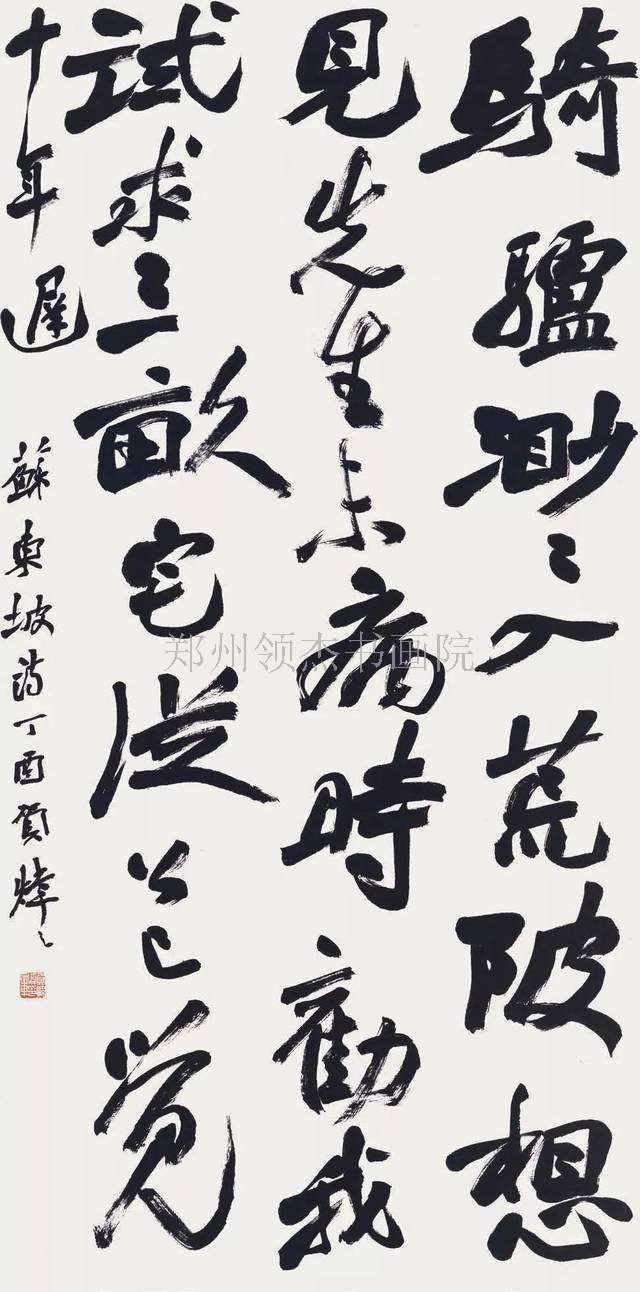 騎驢渺〻入荒陂想
見先生未病時勸我
試求三畝宅從公已覺
十年遲
蘇東坡詩丁酉賀煒〻
郑州领杰书画院